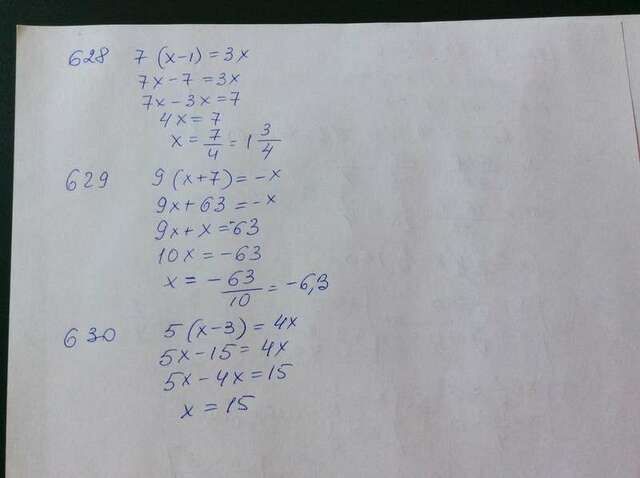 628 7 (x-1) = 3x
7x - 7 = 3x
7x - 3x = 7
4x = 7
x = 7/4 = 1 3/4
629 9 (x+7) = -x
9x + 63 = -x
9x + x = -63
10x = -63
x = - 63/10 = -6,3
630 5 (x-3) = 4x
5x - 15 = 4x
5x - 4x = 15
x = 15